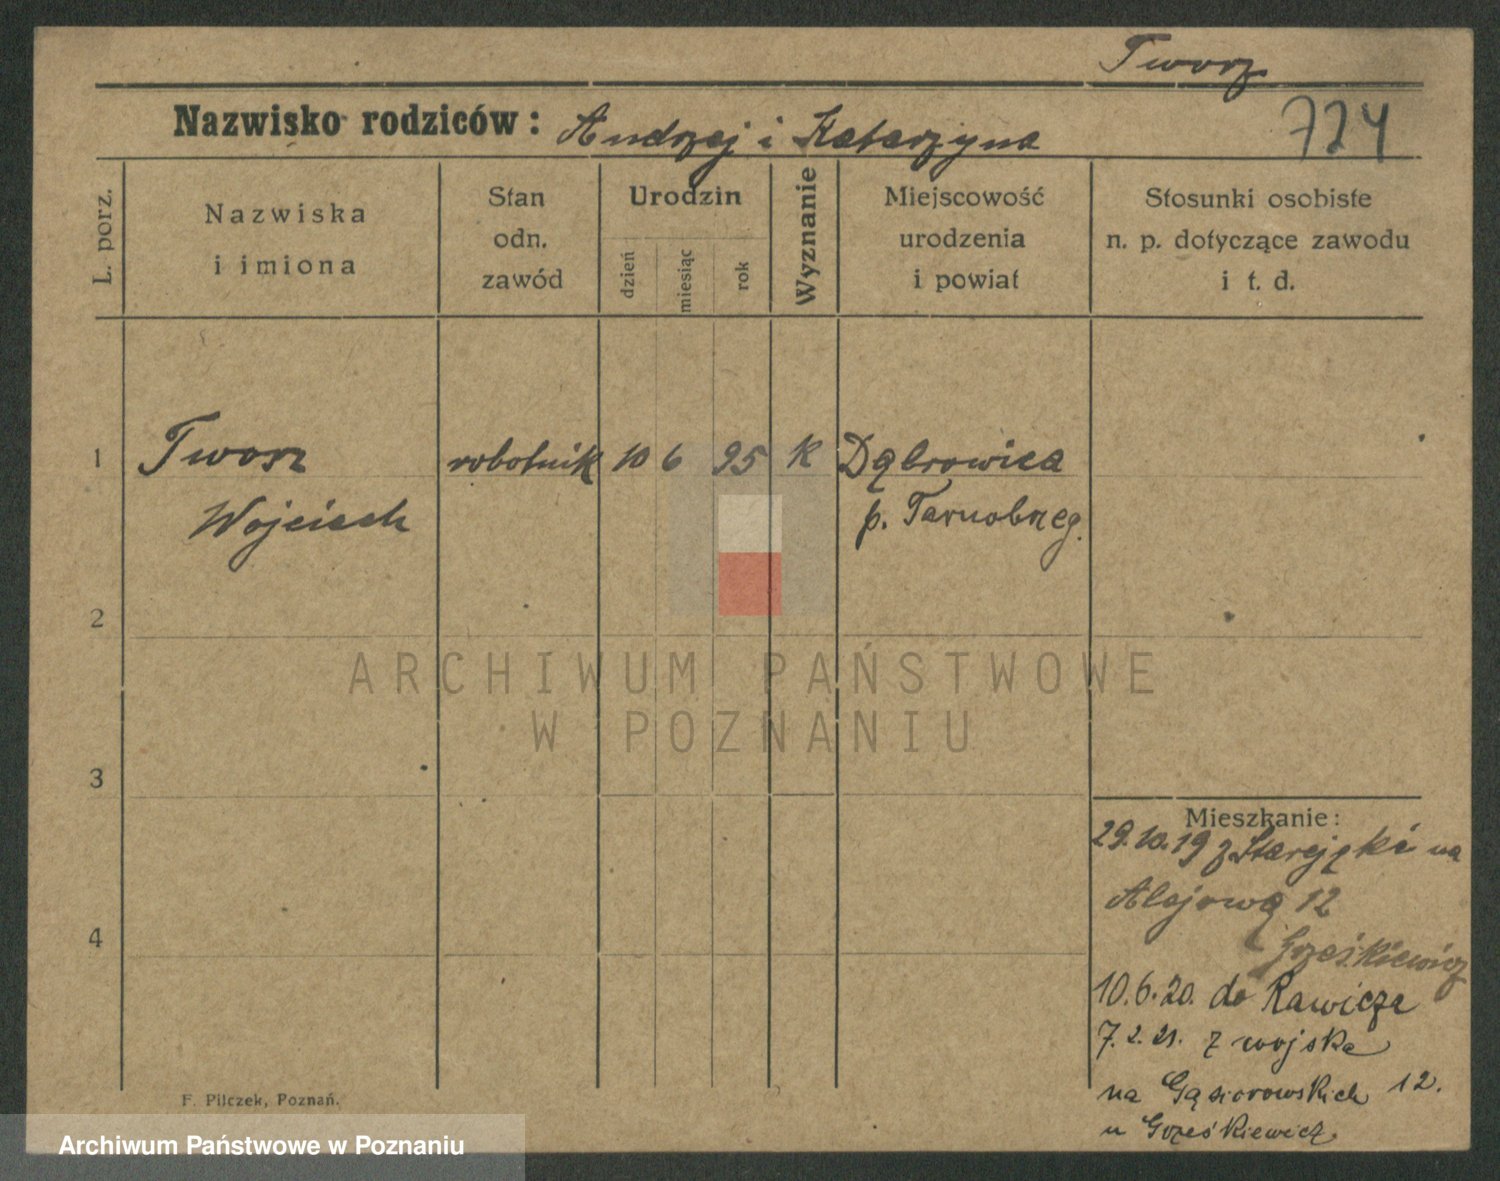 Tworz
Nazwisko rodziców: Andrzej i Katarzyna
724
L. porz.
Nazwiska
i imiona
Stan
odn.
zawód
Urodzin
dzień
miesiąc
rok
Wyznanie
Miejscowość
urodzenia
i powiat
Stosunki osobiste
n. p. dotyczące zawodu
i t. d.
1 Tworz robotnik 10 6 95 K Dąbrowica
Wojciech p. Tarnobrzeg.
2
ARCHIWUM PAŃSTWOWE
W POZNANIU
3
Mieszkanie:
29.10.19 z Starejąki na
Alejową 12
4
Grześkiewicz
10.6.20. do Rawicza
7.2.21. z wojska
na Gąsiorowskich 12.
u Grześkiewicz
F. Pilczek, Poznań.
Archiwum Państwowe w Poznaniu